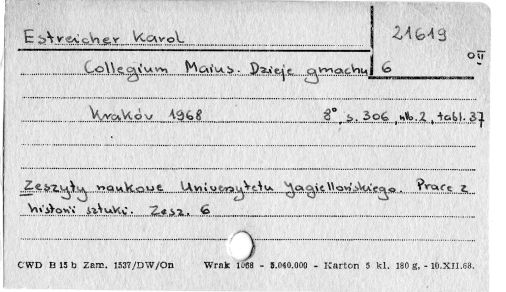 Estreicher Karol
21619
OII
Collegium Maius. Dzieje gmachu 6
Kraków 1968 8°, s. 306, nlb. 2, tabl. 37
Zeszyty naukowe Uniwersytetu Jagiellońskiego. Prace z
historii sztuki. Zesz. 6
CWD B 15 b Zam. 1537/DW/On Wrak 1068 - 5.000.000 - Karton 5 kl. 180 g. - 10.XII.68.